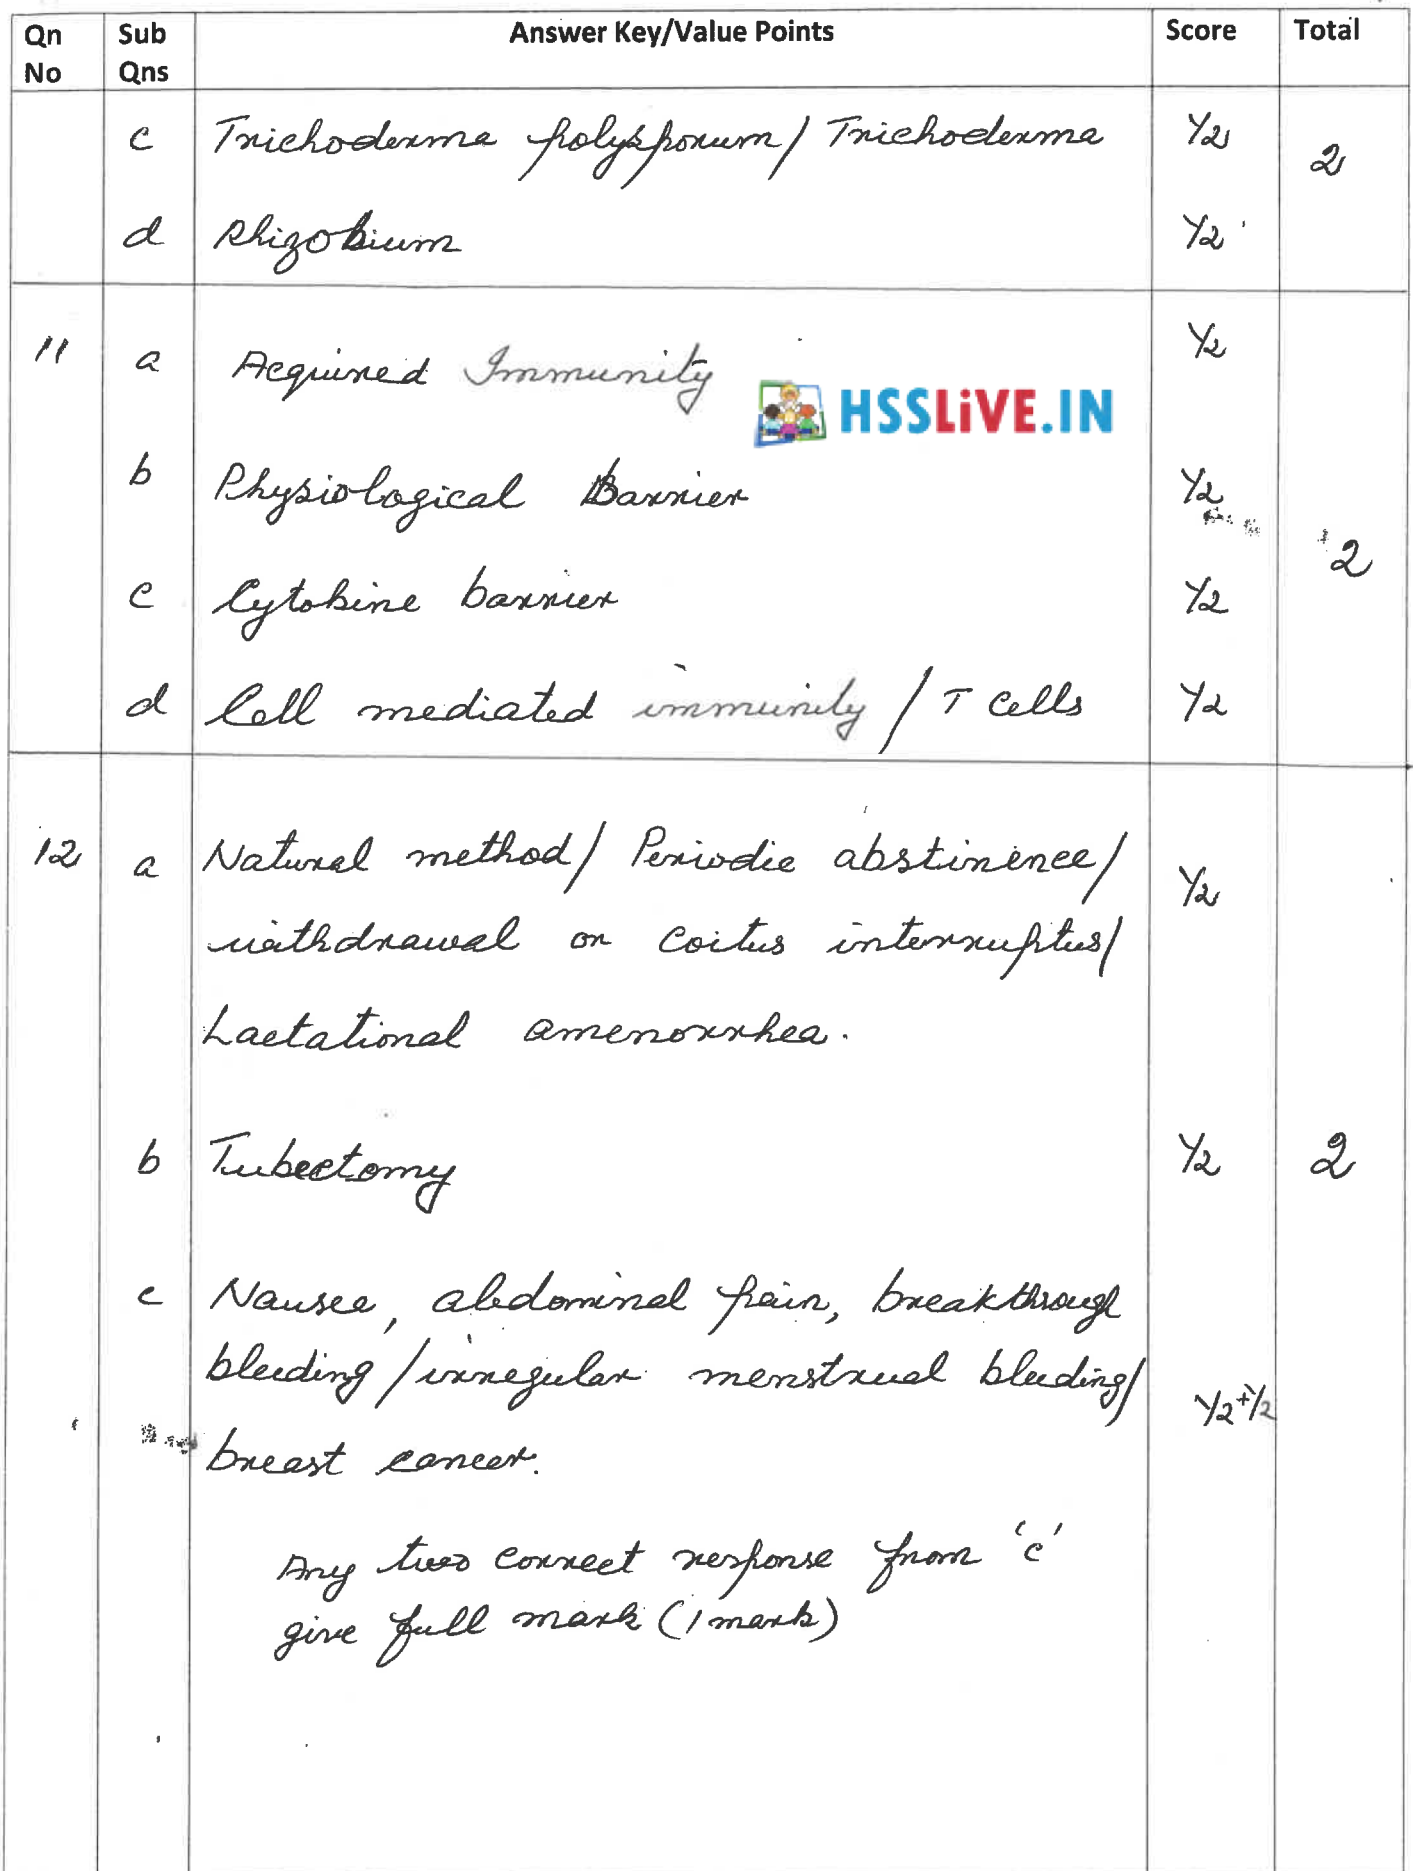 Qn No Sub Qns Answer Key/Value Points Score Total
c Trichoderma polysporum / Trichoderma ½ 2
d Rhizobium ½
11 a Acquired Immunity ½
HSSLiVE.IN
b Physiological Barrier ½
2
c Cytokine barrier ½
d Cell mediated immunity / T cells ½
12 a Natural method/ Periodic abstinence/ ½
withdrawal or coitus interruptus/
Lactational amenorrhea.
b Tubectomy ½ 2
c Nausea, abdominal pain, breakthrough
bleeding / irregular menstrual bleeding/ ½+½
breast cancer.
Any two correct response from 'c'
give full mark (1 mark)